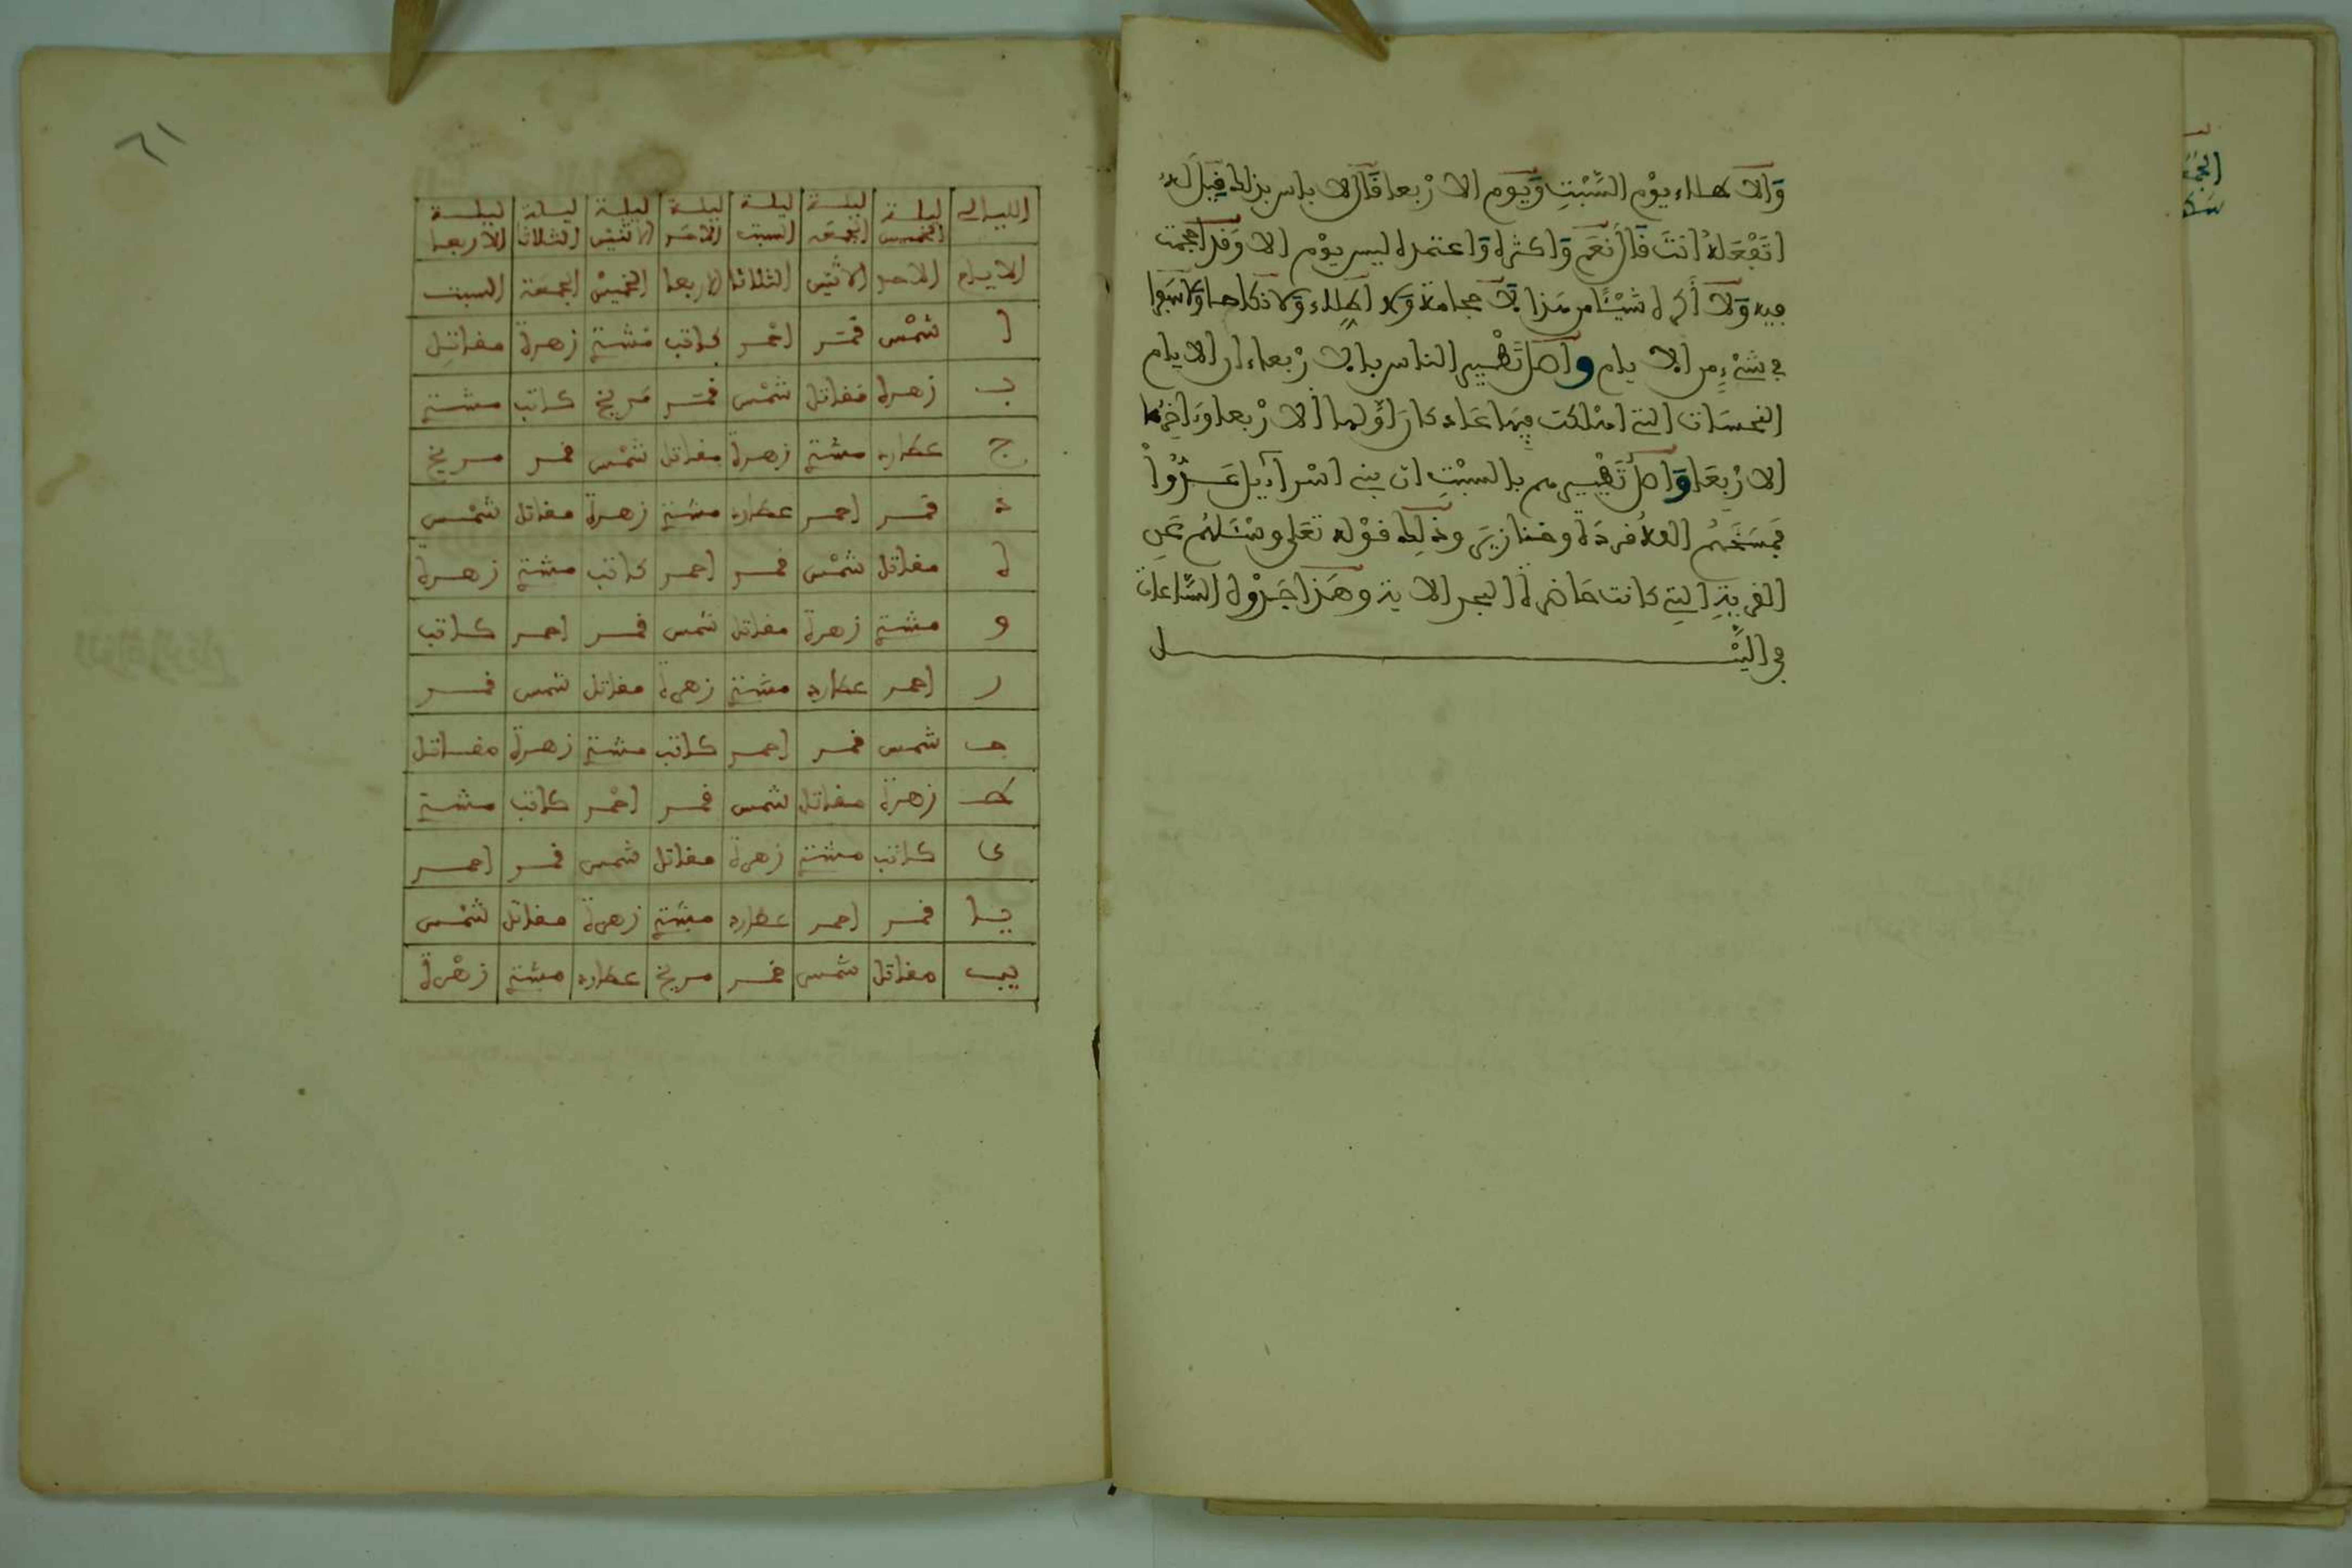 والاطلاء يوم السَّبْتِ وَيَوم الارْبعا فَقَال لا باس بذلك فَقِيلَ لَهُ
اتَفْعَلهُ انتَ قَال نَعَم وَاكثره وَاعتمده ليس يوْم الا وَقد احتجمت
فيه وَلا أكره شَيْئًا من هَذا لا حجامة وَلا اطلاء وَلا نكاحا وَلا سَفرا
في شَيْءٍ من الايام واصل تَطْيير الناس بالارْبعاء ان الايام
النحسَات التي اهْلكت فيها عَاد كانَ أوَّلها الارْبعا وءَاخِرُها
الارْبعَا وَاصل تَطْييرهم بالسبْتِ ان بني اسْراءيل عَدَوْا
فَمسَخَهُم الله قردَة وخنازِيَر وذلك قوْله تعَلى وسْئَلهُم عَنِ
القريَةِ التِي كانت حَاضرة البحر الاية وهَذا جَدْول السَّاعات
في اليْل
٦١
الليالي ليلة الخميس ليلة الجمعَة ليلة السبت ليلة الاحَد ليلة الاثنَيْن ليلة الثلاثا ليلة الاربعا
الايام الاحد الاثنَين الثلاثا الاربعا الخميسْ الجمعَة السبت
ا شمْس قمَر احْمر كاتب مشتري زهرة مقاتل
ب زهرة مقاتل شمْس قمَر مَريخ كاتب مشتري
ج عطارد مشتري زهرة مقاتل شمْس قمر مريخ
د قمر احمر عطارد مشتري زهرة مقاتل شمْس
ه مقاتل شمْس قمر احمر كاتب مشتري زهرة
و مشتري زهرة مقاتل شمس قمر احمر كاتب
ز احمر عطارد مشتري زهرة مقاتل شمس قمر
ح شمس قمر احمر كاتب مشتري زهرة مقاتل
ط زهرة مقاتل شمس قمر احْمر كاتب مشتري
ي كاتب مشتري زهرة مقاتل شمس قمر احمر
يا قمر احمر عطارد مشتري زهرة مقاتل شمْس
يب مقاتل شمس قمر مريخ عطارد مشتري زهْرة